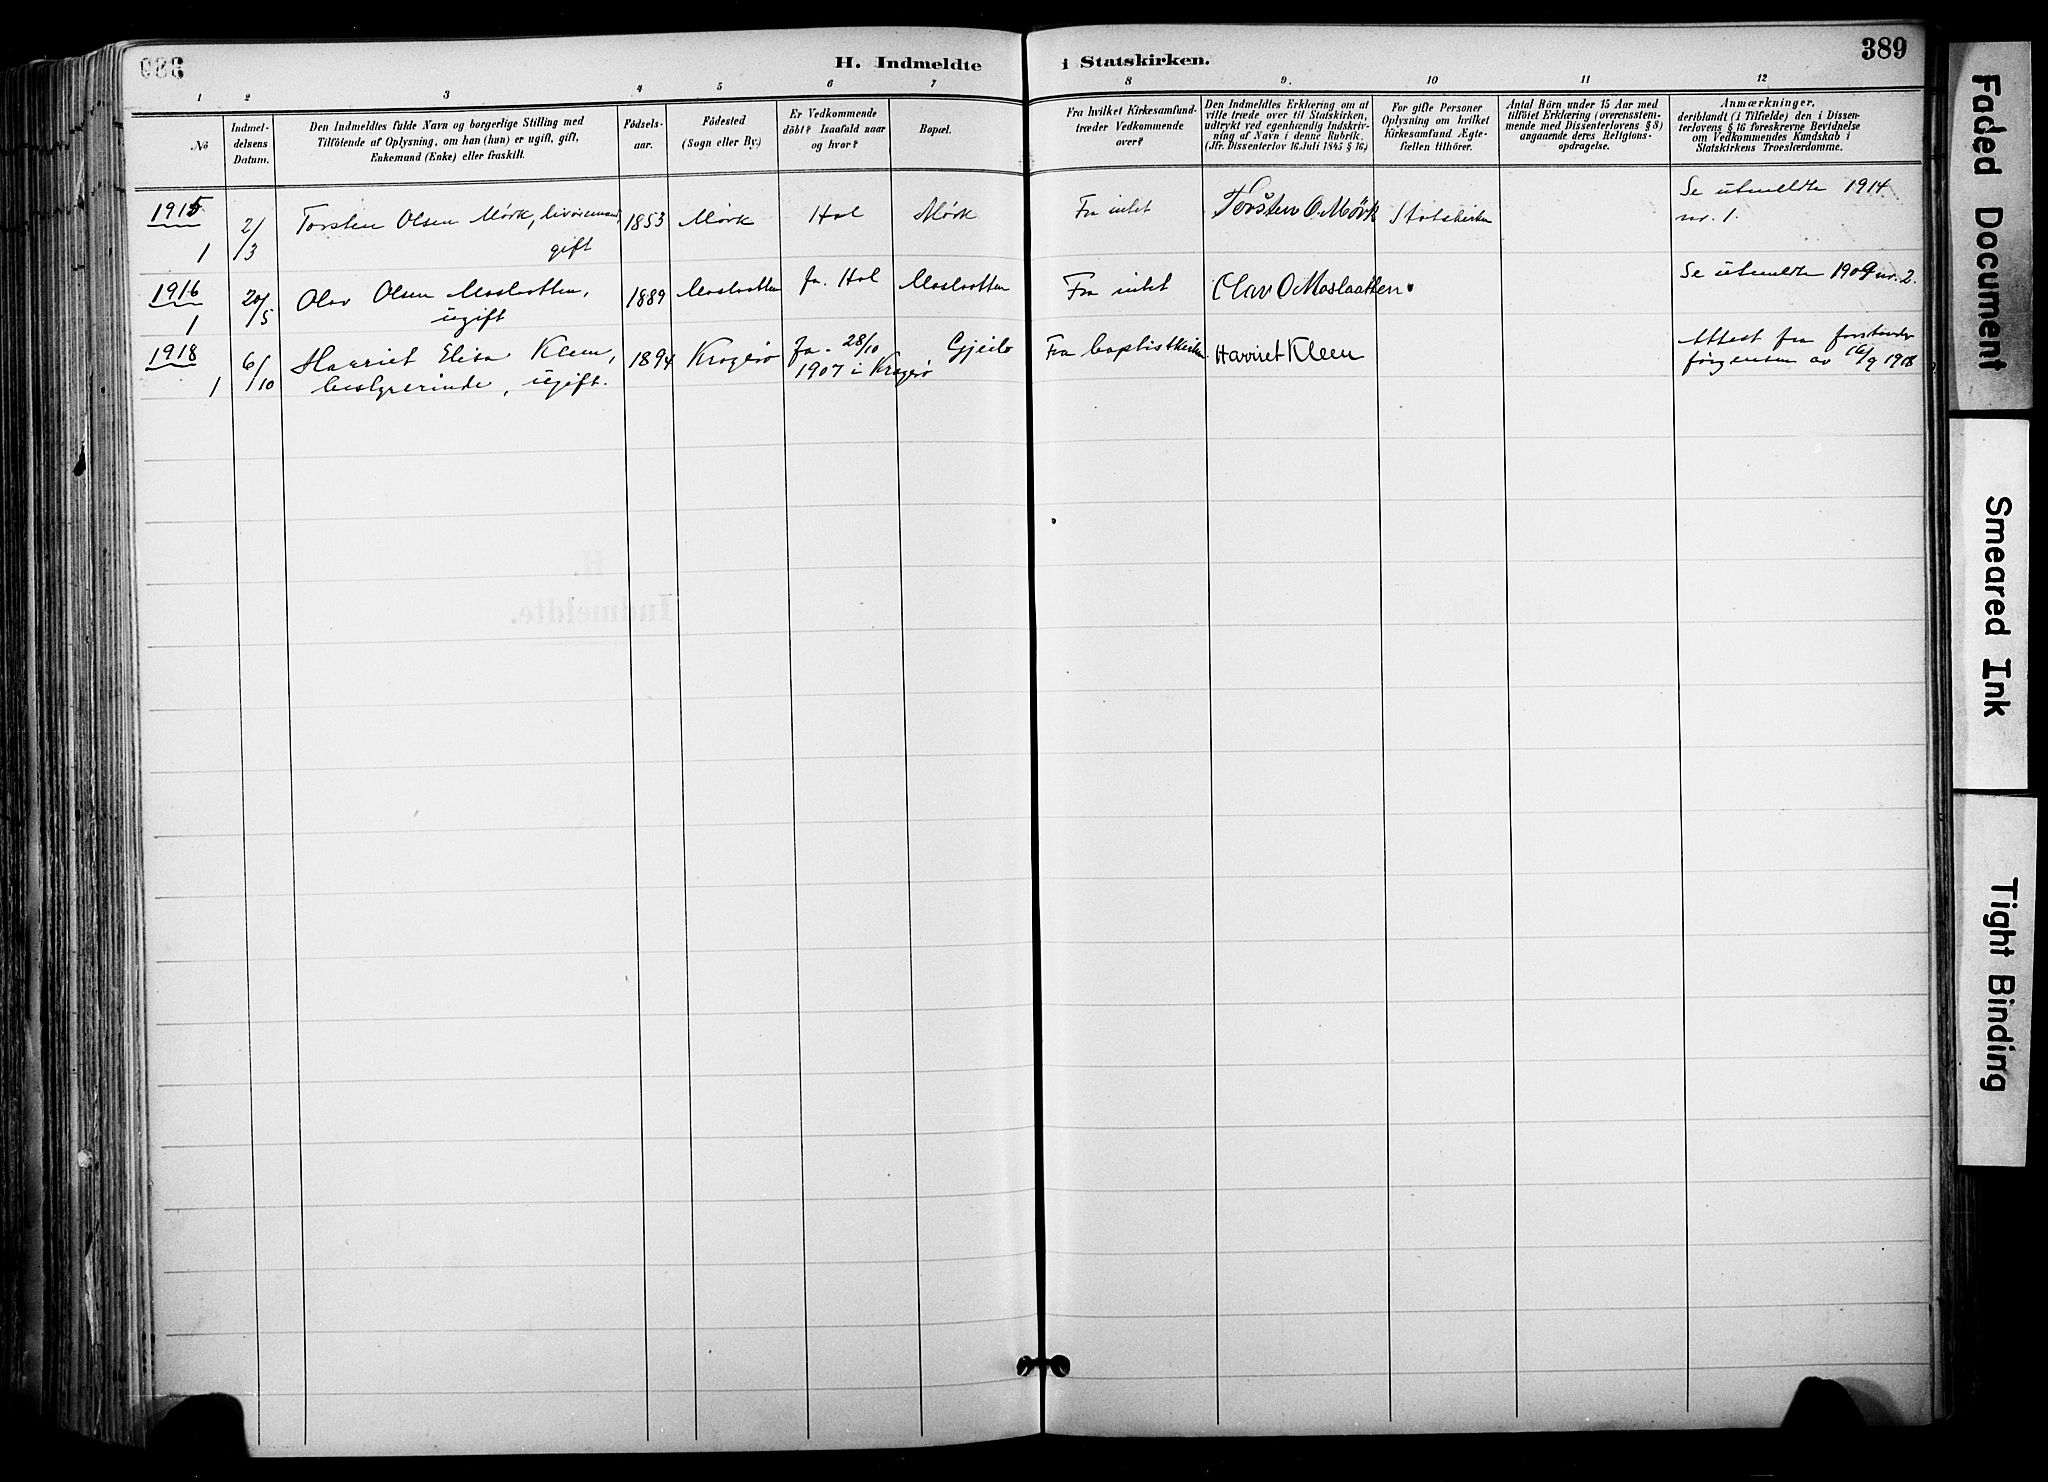 H. Indmeldte i Statskirken.
389
1 2 3 4 5 6 7 8 9. 10 11 12
No
Indmeldelsens Datum.
Den Indmeldtes fulde Navn og borgerlige Stilling med
Tilföiende af Oplysning, om han (hun) er ugift, gift,
Enkemand (Enke) eller fraskilt.
Födselsaar.
Födested
(Sogn eller By.)
Er Vedkommende
döbt? Isaafald naar
og hvor?
Bopæl.
Fra hvilket Kirkesamfund-
træder Vedkommende
over?
Den Indmeldtes Erklæring om at
ville træde over til Statskirken,
udtrykt ved egenhændig Indskriv-
ning af Navn i denne Rubrik.
(Jfr. Dissenterlov 16. Juli 1845 § 16.)
For gifte Personer
Oplysning om hvilket
Kirkesamfund Ægte-
fællen tilhörer.
Antal Börn under 15 Aar med
tilföiet Erklæring (overensstem-
mende med Dissenterlovens § 8)
angaaende deres Religions-
opdragelse.
Anmærkninger,
deriblandt (i Tilfælde) den i Dissen-
terlovens § 16 foreskrevne Bevidnelse
om Vedkommendes Kundskab i
Statskirkens Troeslærdomme.
1915
1 2/3 Torsten Olsen Mørk, gift 1853 Mørk Hol Mørk Fra intet Torsten O Mørk Statskirken Se utmeldte 1914
nr. 1.
1916
1 20/5 Olav Olsen Moslaatten, ugift 1889 Moslaatten Ja. Hol Moslaatten Fra intet Olav O Moslaatten. Se utmeldte 1909 nr. 2.
1918
1 6/10 Harriet Elisa Kleen, bestyrerinde, ugift. 1894 Kragerø Ja. 28/10 1907 i Kragerø Gjeilo Fra baptistkirken Harriet Kleen Attest fra forstander
Jørgensen av 16/9 1918
Faded Document
Smeared Ink
Tight Binding